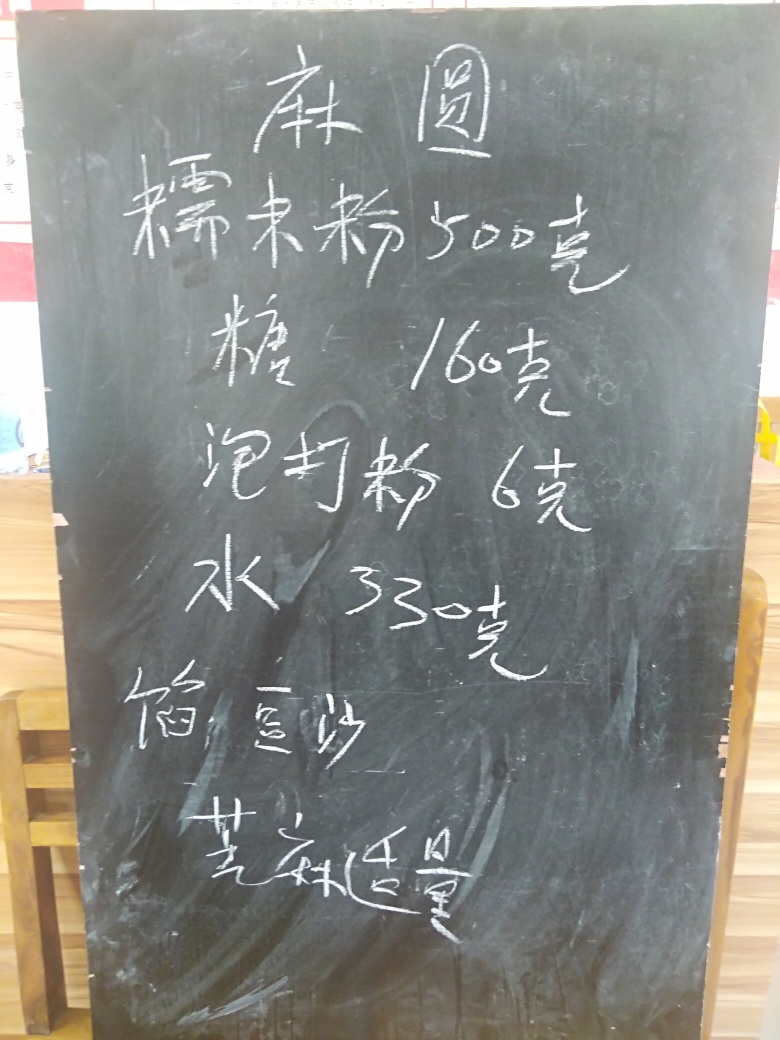 麻圆
糯米粉500克
糖 160克
泡打粉 6克
水 330克
馅 豆沙
芝麻适量